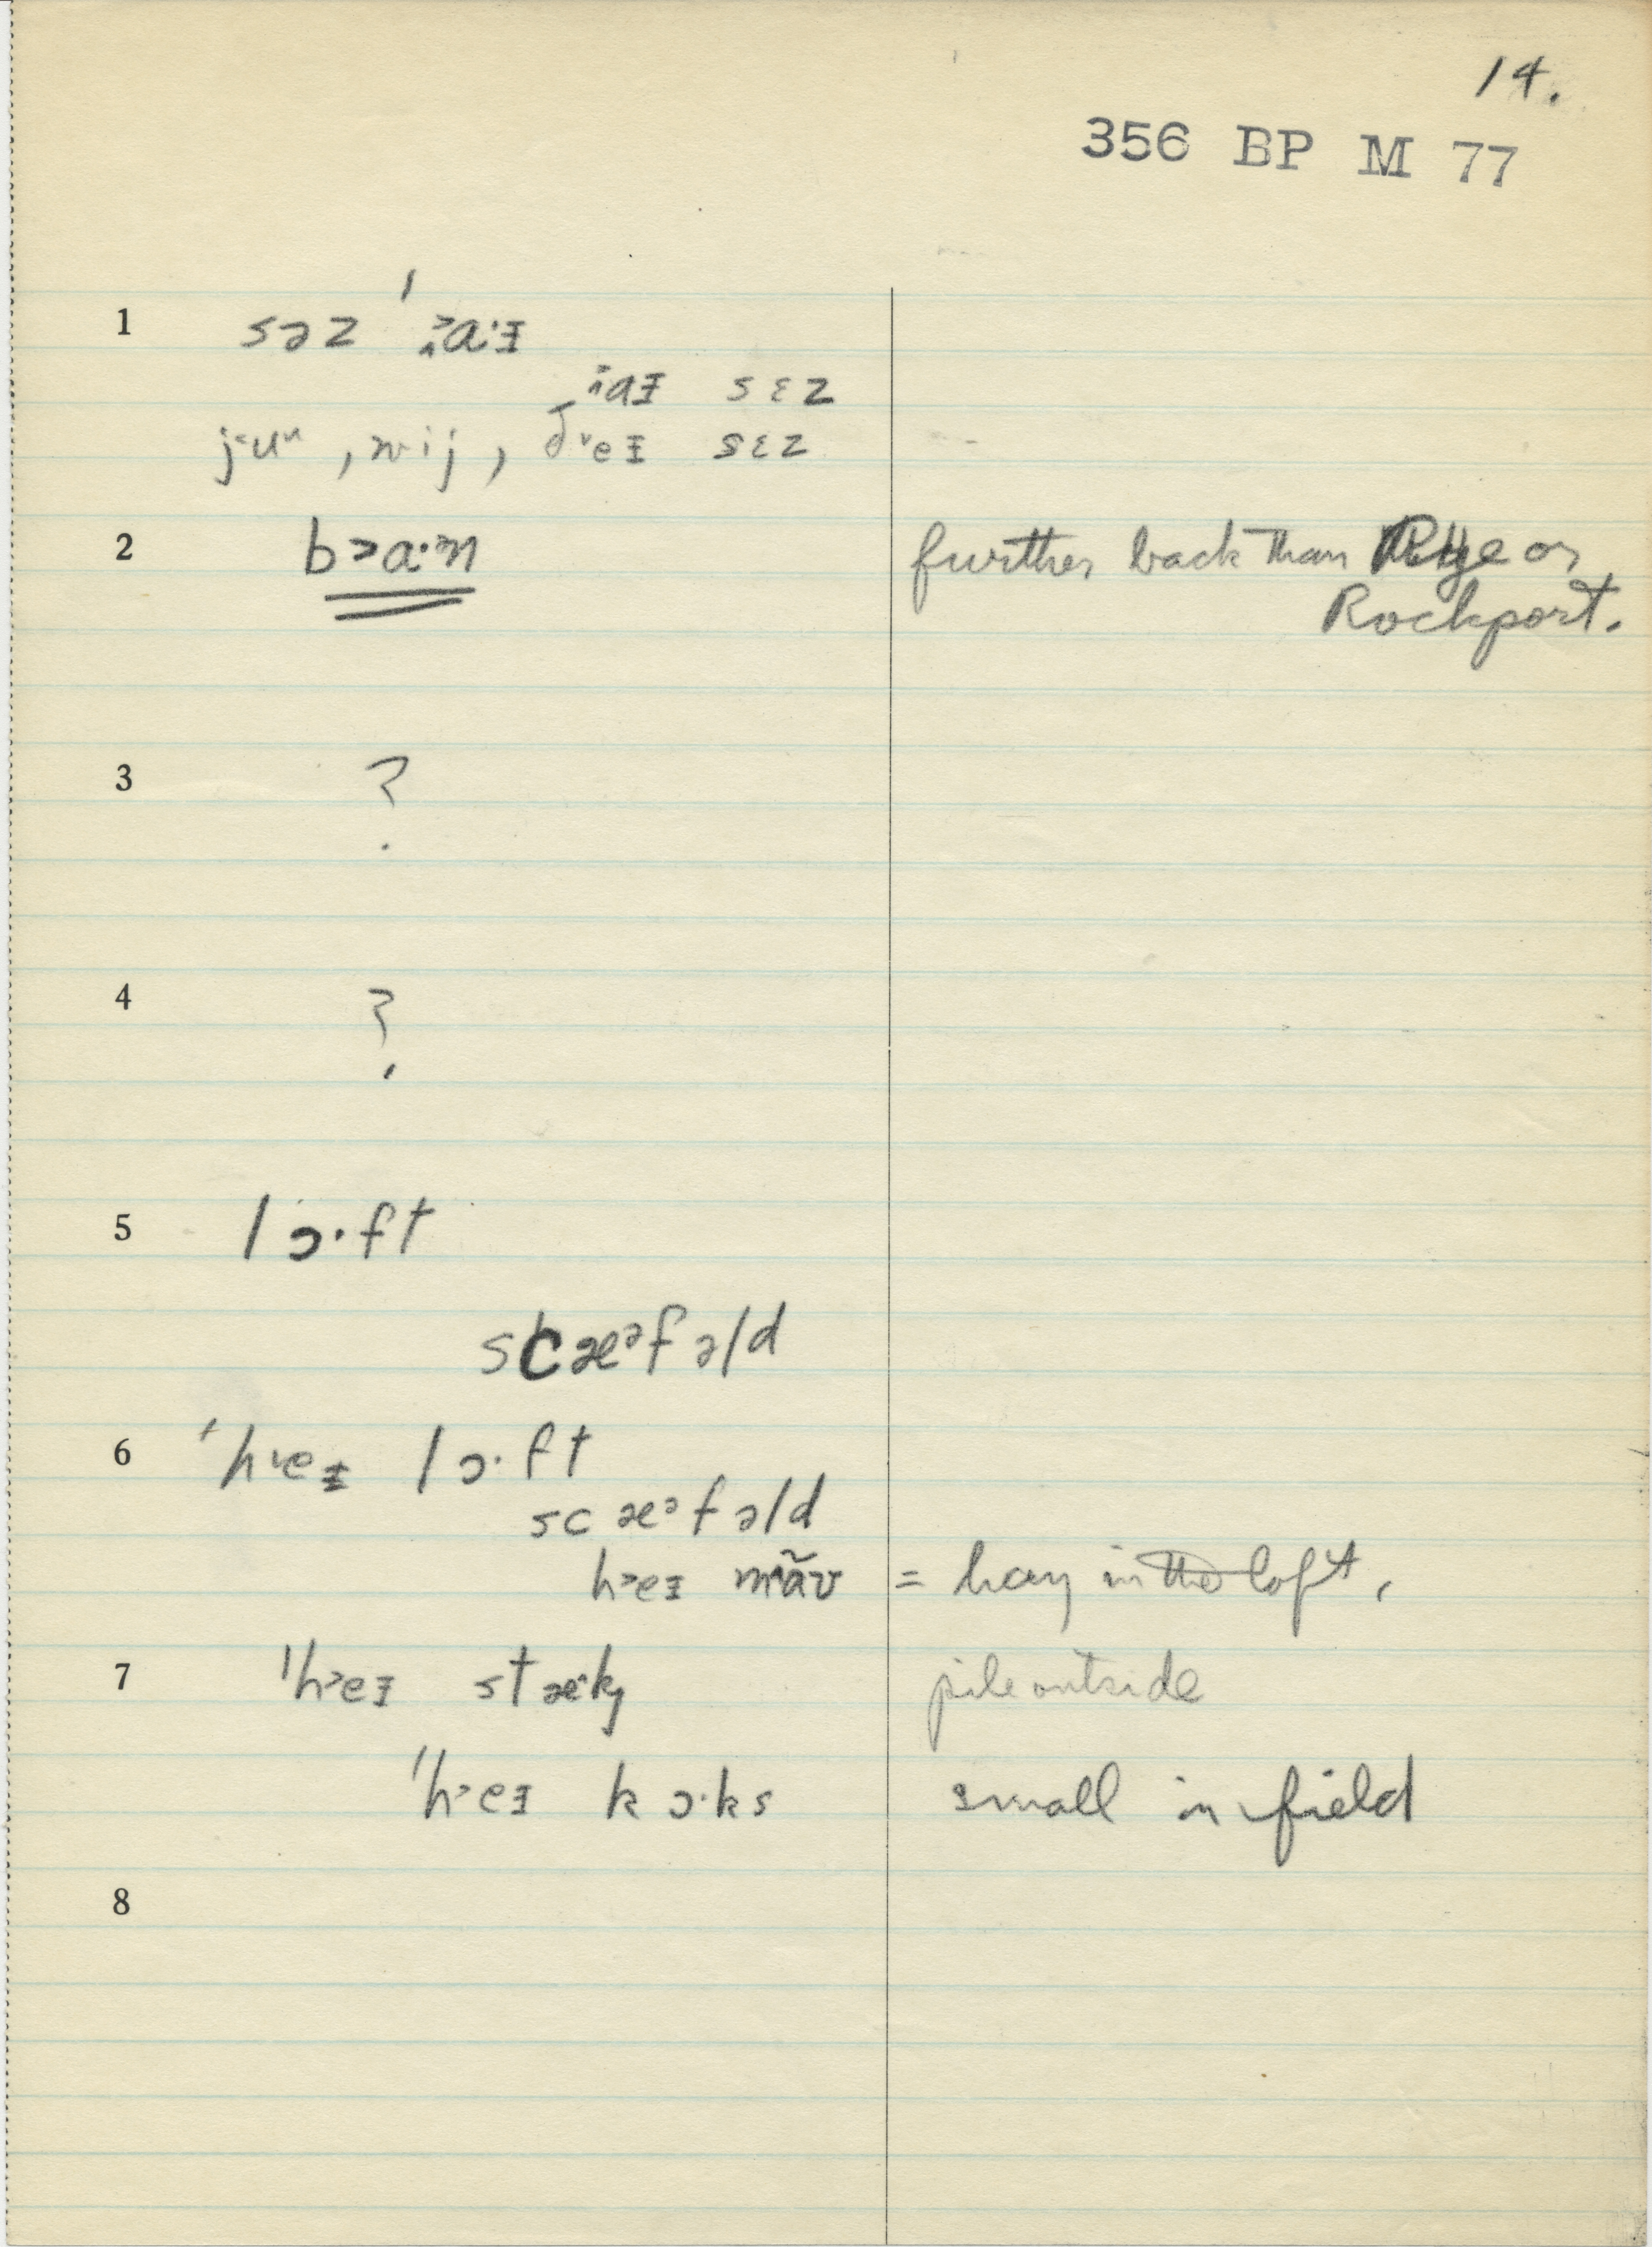 14.
356 BP M 77
1 səz ˈa·ɪ
aɪ sɛz
juᵘ, wij, ðeɪ sɛz
2 b>a·n further back than Rye or
Rockport.
3 ?
4 ?
5 lɔ·ft
scæᵊfəld
6 ˈh‹eɪ lɔ·ft
scæᵊfəld
h>eɪ mãʊ = hay in the loft,
7 ˈh>eɪ stæ^k pile outside
ˈh>eɪ kɔ·ks small in field
8